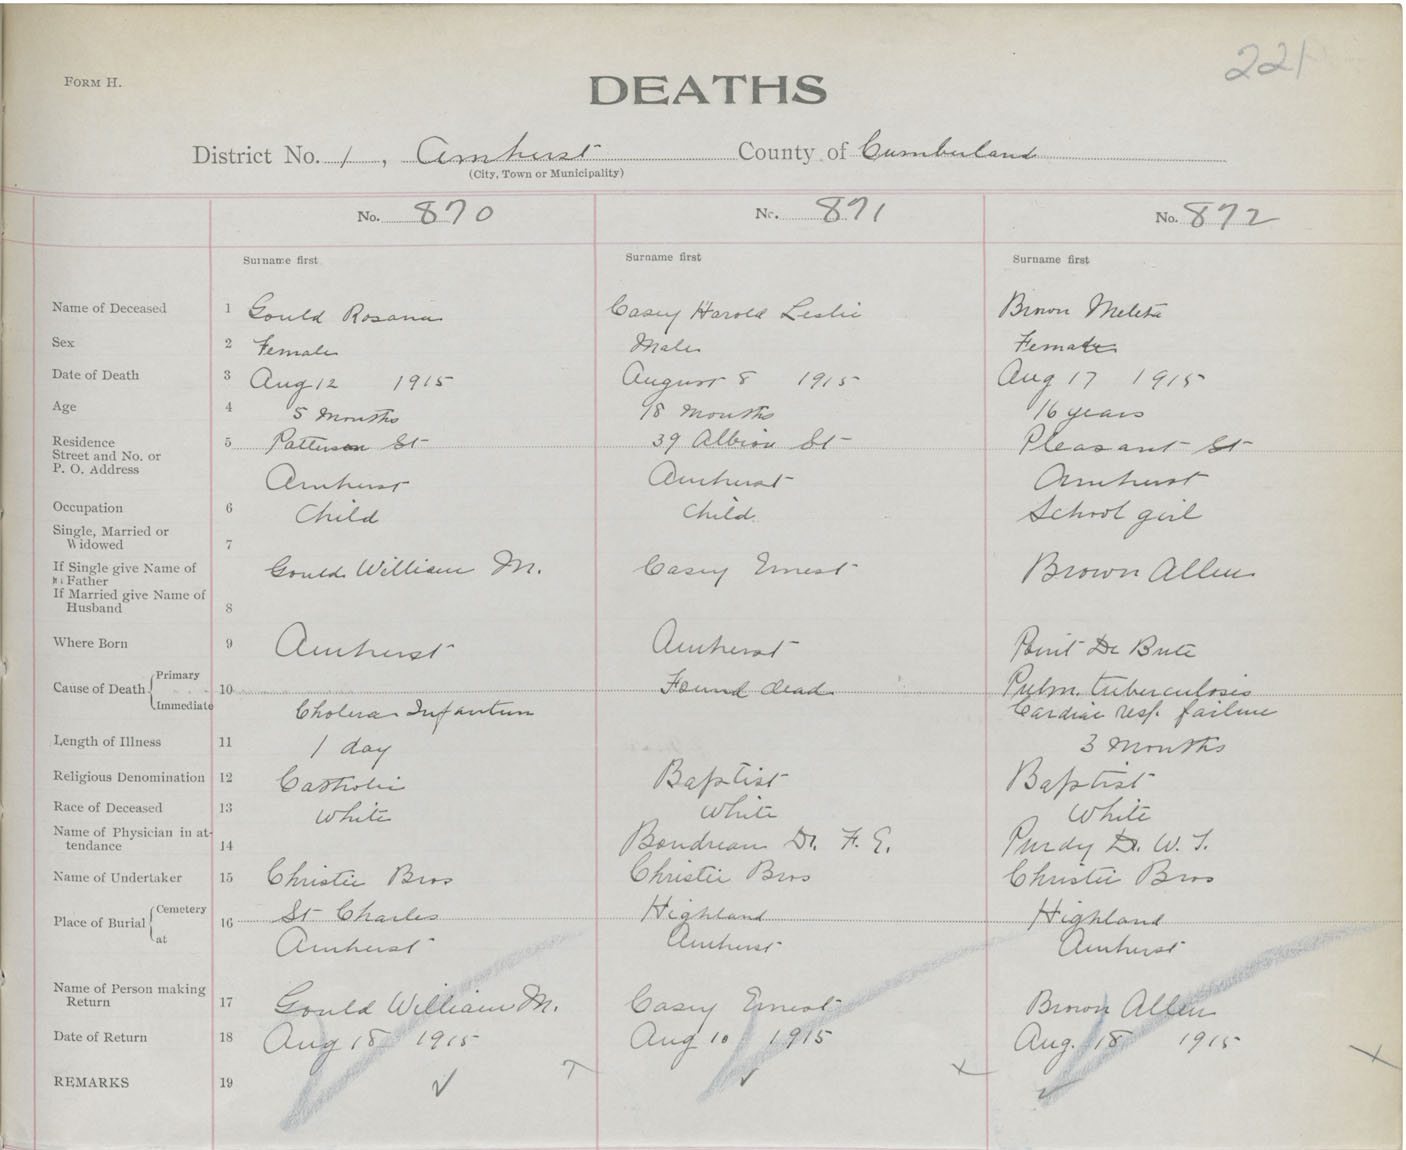 221
FORM H.
DEATHS
District No. 1, Amherst County of Cumberland
(City, Town or Municipality)
No. 870 No. 871 No. 872
Surname first Surname first Surname first
Name of Deceased 1 Gould Rosana Casey Harold Leslie Brown Meleta
Sex 2 Female Male Female
Date of Death 3 Aug 12 1915 August 8 1915 Aug 17 1915
Age 4 5 Months 18 months 16 years
Residence 5 Patterson St 39 Albion St Pleasant St
Street and No. or
P. O. Address Amherst Amherst Amherst
Occupation 6 Child Child School girl
Single, Married or
Widowed 7
If Single give Name of
Father Gould William M. Casey Ernest Brown Allen
If Married give Name of
Husband 8
Where Born 9 Amherst Amherst Point De Bute
Cause of Death Primary 10 Found dead Pulm. tuberculosis
Immediate Cholera Infantum Cardiac resp. failure
Length of Illness 11 1 day 3 Months
Religious Denomination 12 Catholic Baptist Baptist
Race of Deceased 13 White White White
Name of Physician in at-
tendance 14 Boudreau Dr. F. E. Purdy Dr. W. T.
Name of Undertaker 15 Christie Bros Christie Bros Christie Bros
Place of Burial Cemetery 16 St Charles Highland Highland
at Amherst Amherst Amherst
Name of Person making
Return 17 Gould William M. Casey Ernest Brown Allen
Date of Return 18 Aug 18 1915 Aug 10 1915 Aug. 18 1915
REMARKS 19